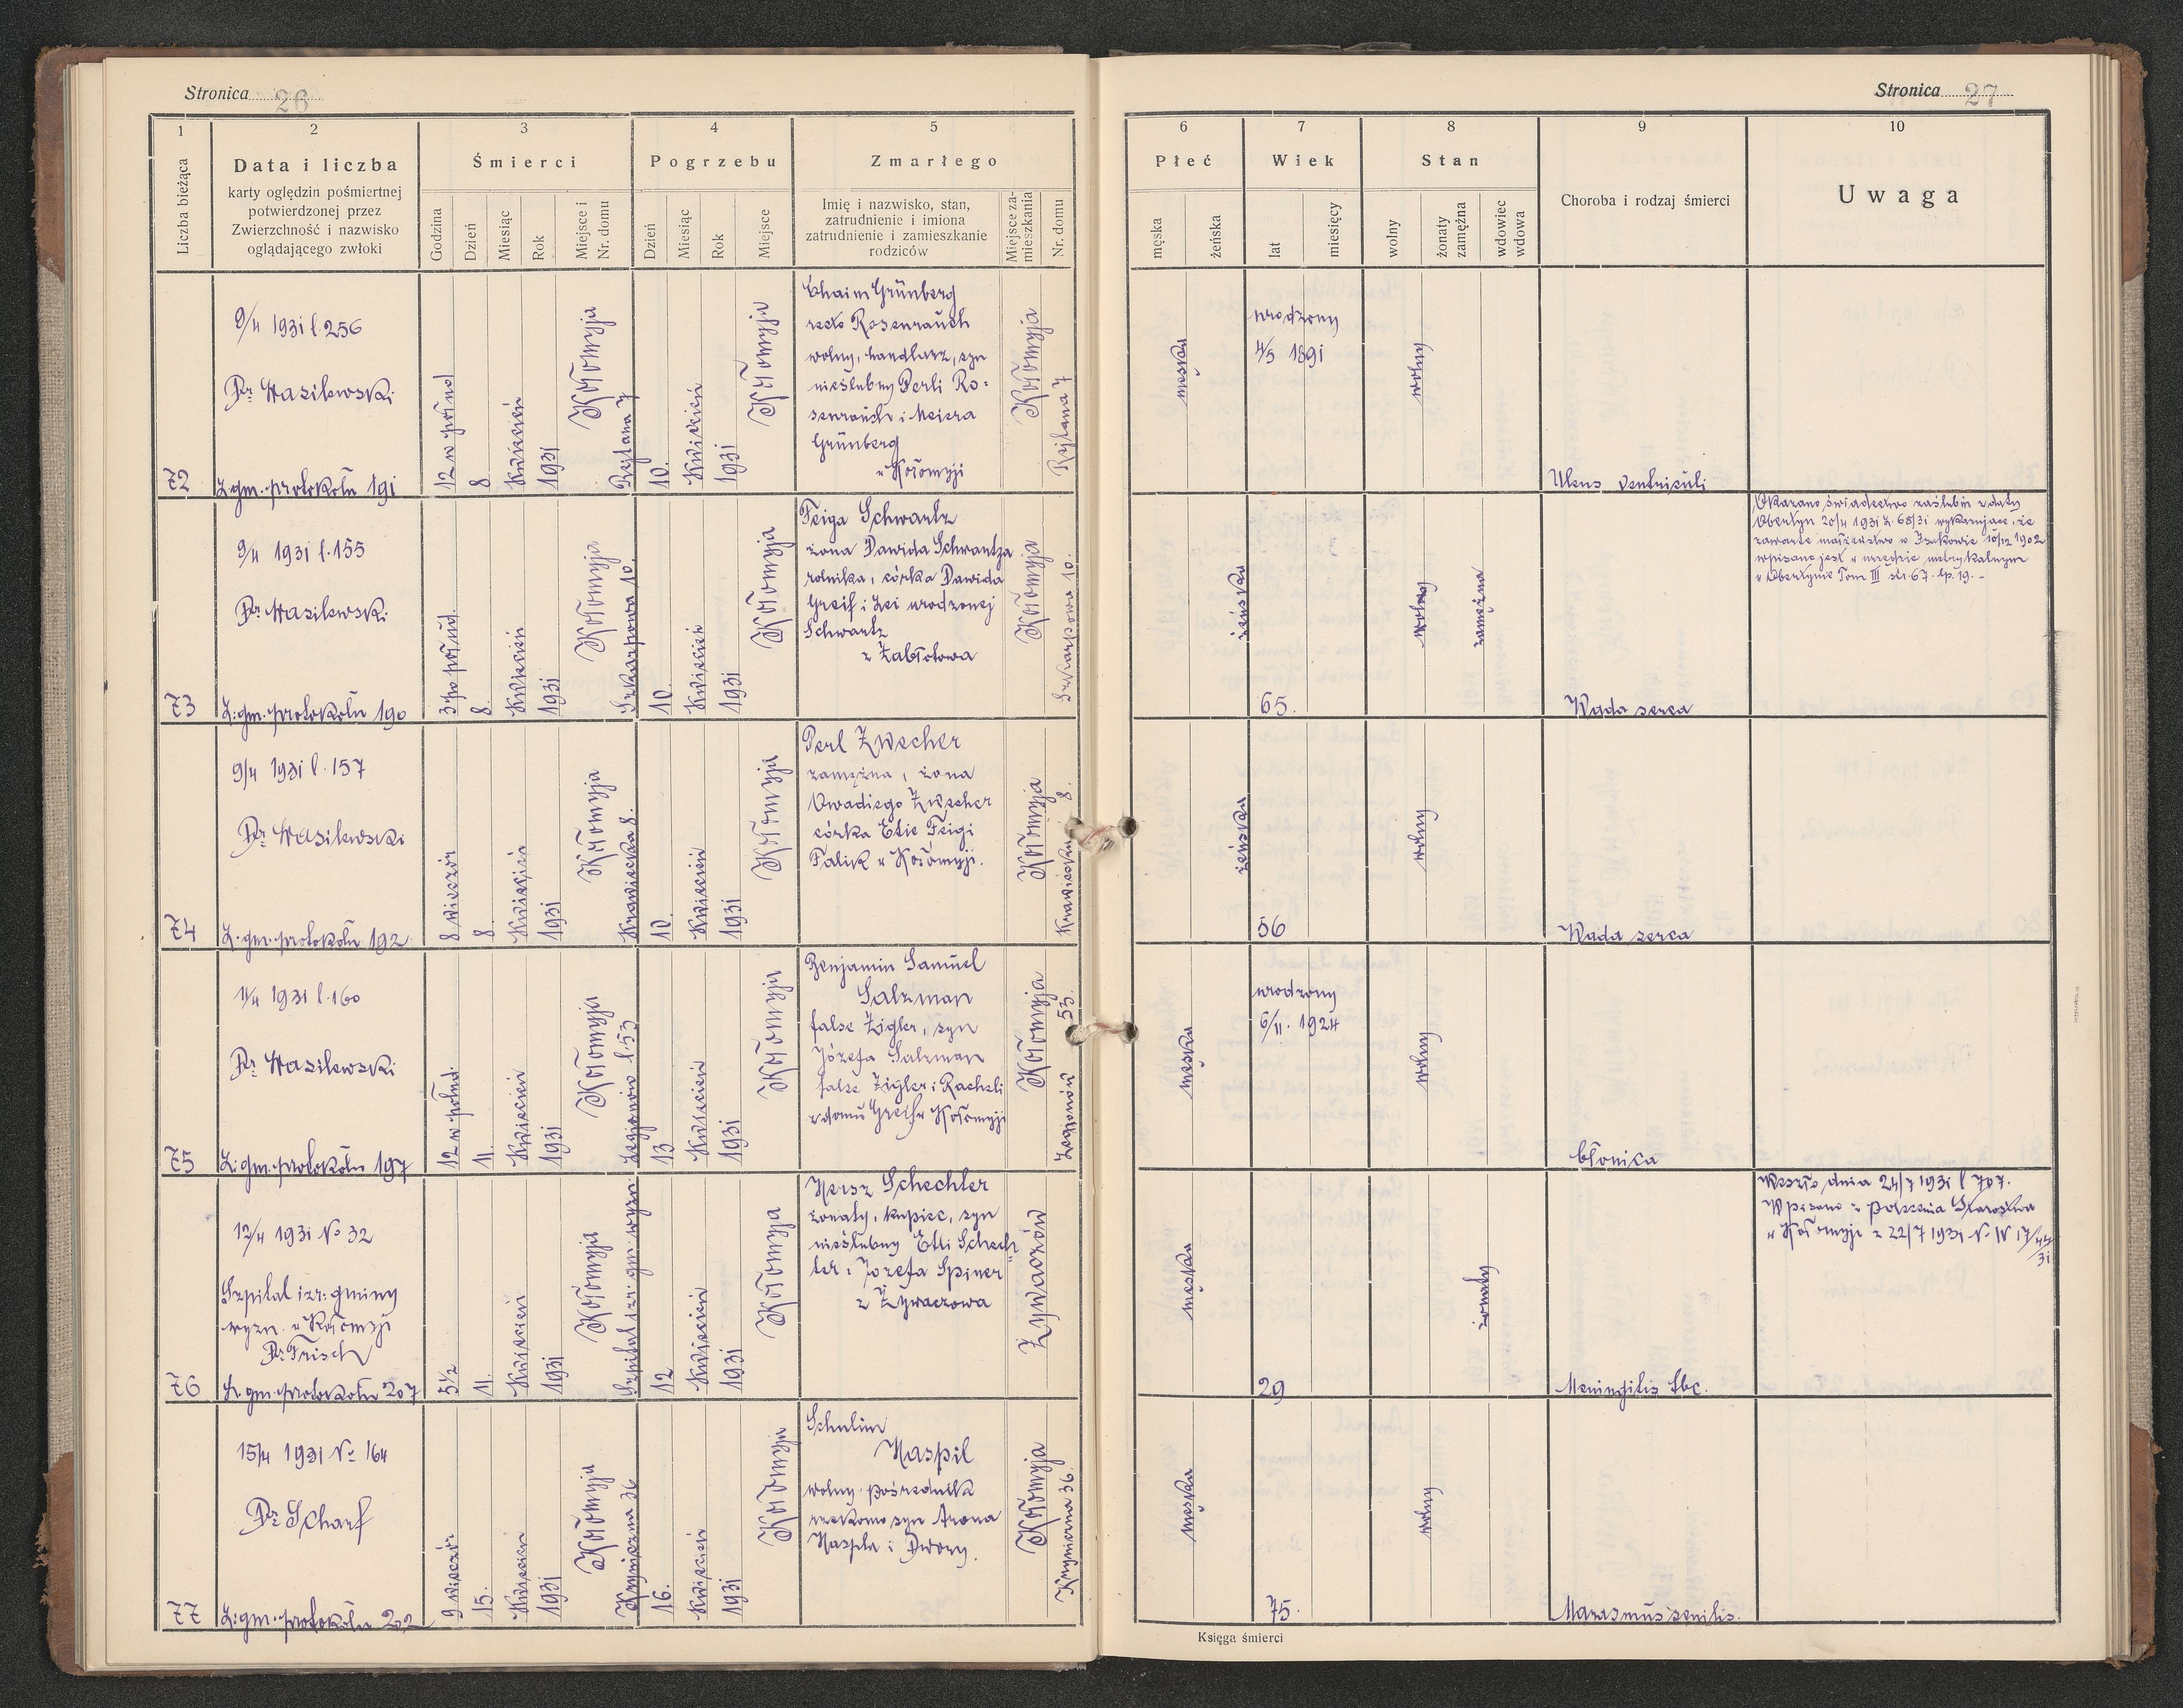 Stronica 26
1
2
3
4
5
Liczba bieżąca
Data i liczba
karty oględzin pośmiertnej
potwierdzonej przez
Zwierzchność i nazwisko
oglądającego zwłoki
Śmierci
Godzina
Dzień
Miesiąc
Rok
Miejsce i
Nr. domu
Pogrzebu
Dzień
Miesiąc
Rok
Miejsce
Zmarłego
Imię i nazwisko, stan,
zatrudnienie i imiona
zatrudnienie i zamieszkanie
rodziców
Miejsce za-
mieszkania
Nr. domu
Stronica 27
6
7
8
9
10
Płeć
męska
żeńska
Wiek
lat
miesięcy
Stan
wolny
żonaty
zamężna
wdowiec
wdowa
Choroba i rodzaj śmierci
Uwaga
72
9/4 1931 l. 256
Dr. Wasilewski
L. gm. protokołu 191
12 w połud
8
Kwiecień
1931
Kołomyja
Rejtana 7
10.
Kwiecień
1931
Kołomyja
Chaim Grünberg
recte Rosenrauch
wolny, handlarz, syn
nieślubny Perli Ro-
senrauch i Meiera
Grünberg
w Kołomyji
Kołomyja
Rejtana 7
męska
urodzony
4/5 1891
wolny
Ulcus ventriculi
73
9/4 1931 l. 155
Dr. Wasilewski
L. gm. protokołu 190
3 po połud.
8.
Kwiecień
1931
Kołomyja
Szkarpowa 10.
10.
Kwiecień
1931
Kołomyja
Feiga Schwartz
żona Dawida Schwartza
rolnika, córka Dawida
Greif i Lei urodzonej
Schwartz
z Zabłotowa
Kołomyja
Szkarpowa 10.
żeńska
65.
wolny
zamężna
Wada serca
Okazano świadectwo zaślubin z daty
Obertyn 20/4 1931 L. 65/31 wykazujące, że
zawarte małżeństwo w Isakowie 10/12 1902
wpisane jest w urzędzie metrykalnym
w Obertynie Tom III str. 67. lp. 19. -
74
9/4 1931 l. 157
Dr. Wasilewski
L. gm. protokołu 192
8 wieczór
8.
Kwiecień
1931
Kołomyja
Krawiecka 8.
10.
Kwiecień
1931
Kołomyja
Perl Zwecher
zamężna, żona
Owadiego Zwecher
córka Etie Feigi
Falik w Kołomyji.
Kołomyja
Krawiecka 8.
żeńska
56
wolny
Wada serca
75
11/4 1931 l. 160
Dr. Wasilewski
L. gm. protokołu 197
12 w połud.
11.
Kwiecień
1931
Kołomyja
Legionów l. 53
13
Kwiecień
1931
Kołomyja
Benjamin Samuel
Salzman
false Zigler, syn
Józefa Salzman
false Zigler i Racheli
z domu Greif w Kołomyji
Kołomyja
Legionów 53.
męska
urodzony
6/11. 1924
wolny
błonica
76
12/4 1931 No 32
Szpital izr. gminy
wyzn. w Kołomyji
Dr. Frisch
L. gm. protokołu 207
5 1/2
11.
Kwiecień
1931
Kołomyja
Szpital izr. gm. wyzn.
12
Kwiecień
1931
Kołomyja
Hersz Schechter
żonaty, kupiec, syn
nieślubny Etti Schech-
ter i Jozefa Spiner
z Żywaczowa
Żywaczów
męska
29
żonaty
Meningitis tbc.
Weszło dnia 24/7 1931 l 707.
Wpisano z polecenia Starostwa
w Kołomyji z 22/7 1931 No IV 17/44/31
77
15/4 1931 No 164
Dr. Scharf
L. gm. protokołu 202
9 wieczór
15.
Kwiecień
1931
Kołomyja
Kryniczna 36
16.
Kwiecień
1931
Kołomyja
Schulim
Haspil
wolny pośrednik
rzekomo syn Arona
Haspla i Dwory.
Kołomyja
Kryniczna 36.
męska
75.
wolny
Marasmus senilis.
Księga śmierci